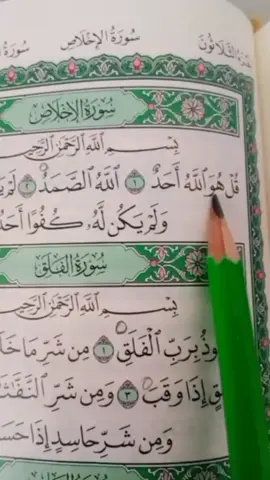 سُورَةُ الإِخْلَاصِ
سُورَةُ الإِخْلَاصِ
بِسْمِ اللَّهِ الرَّحْمَٰنِ الرَّحِيمِ
قُلْ هُوَ اللَّهُ أَحَدٌ ١ اللَّهُ الصَّمَدُ ٢
وَلَمْ يَكُن لَّهُۥ كُفُوًا
سُورَةُ الفَلَقِ
بِسْمِ اللَّهِ الرَّحْمَٰنِ الرَّحِيمِ
بِرَبِّ الْفَلَقِ ١ مِن شَرِّ مَا
إِذَا وَقَبَ ٣ وَمِن شَرِّ
وَمِن شَرِّ حَاسِدٍ إِذَا